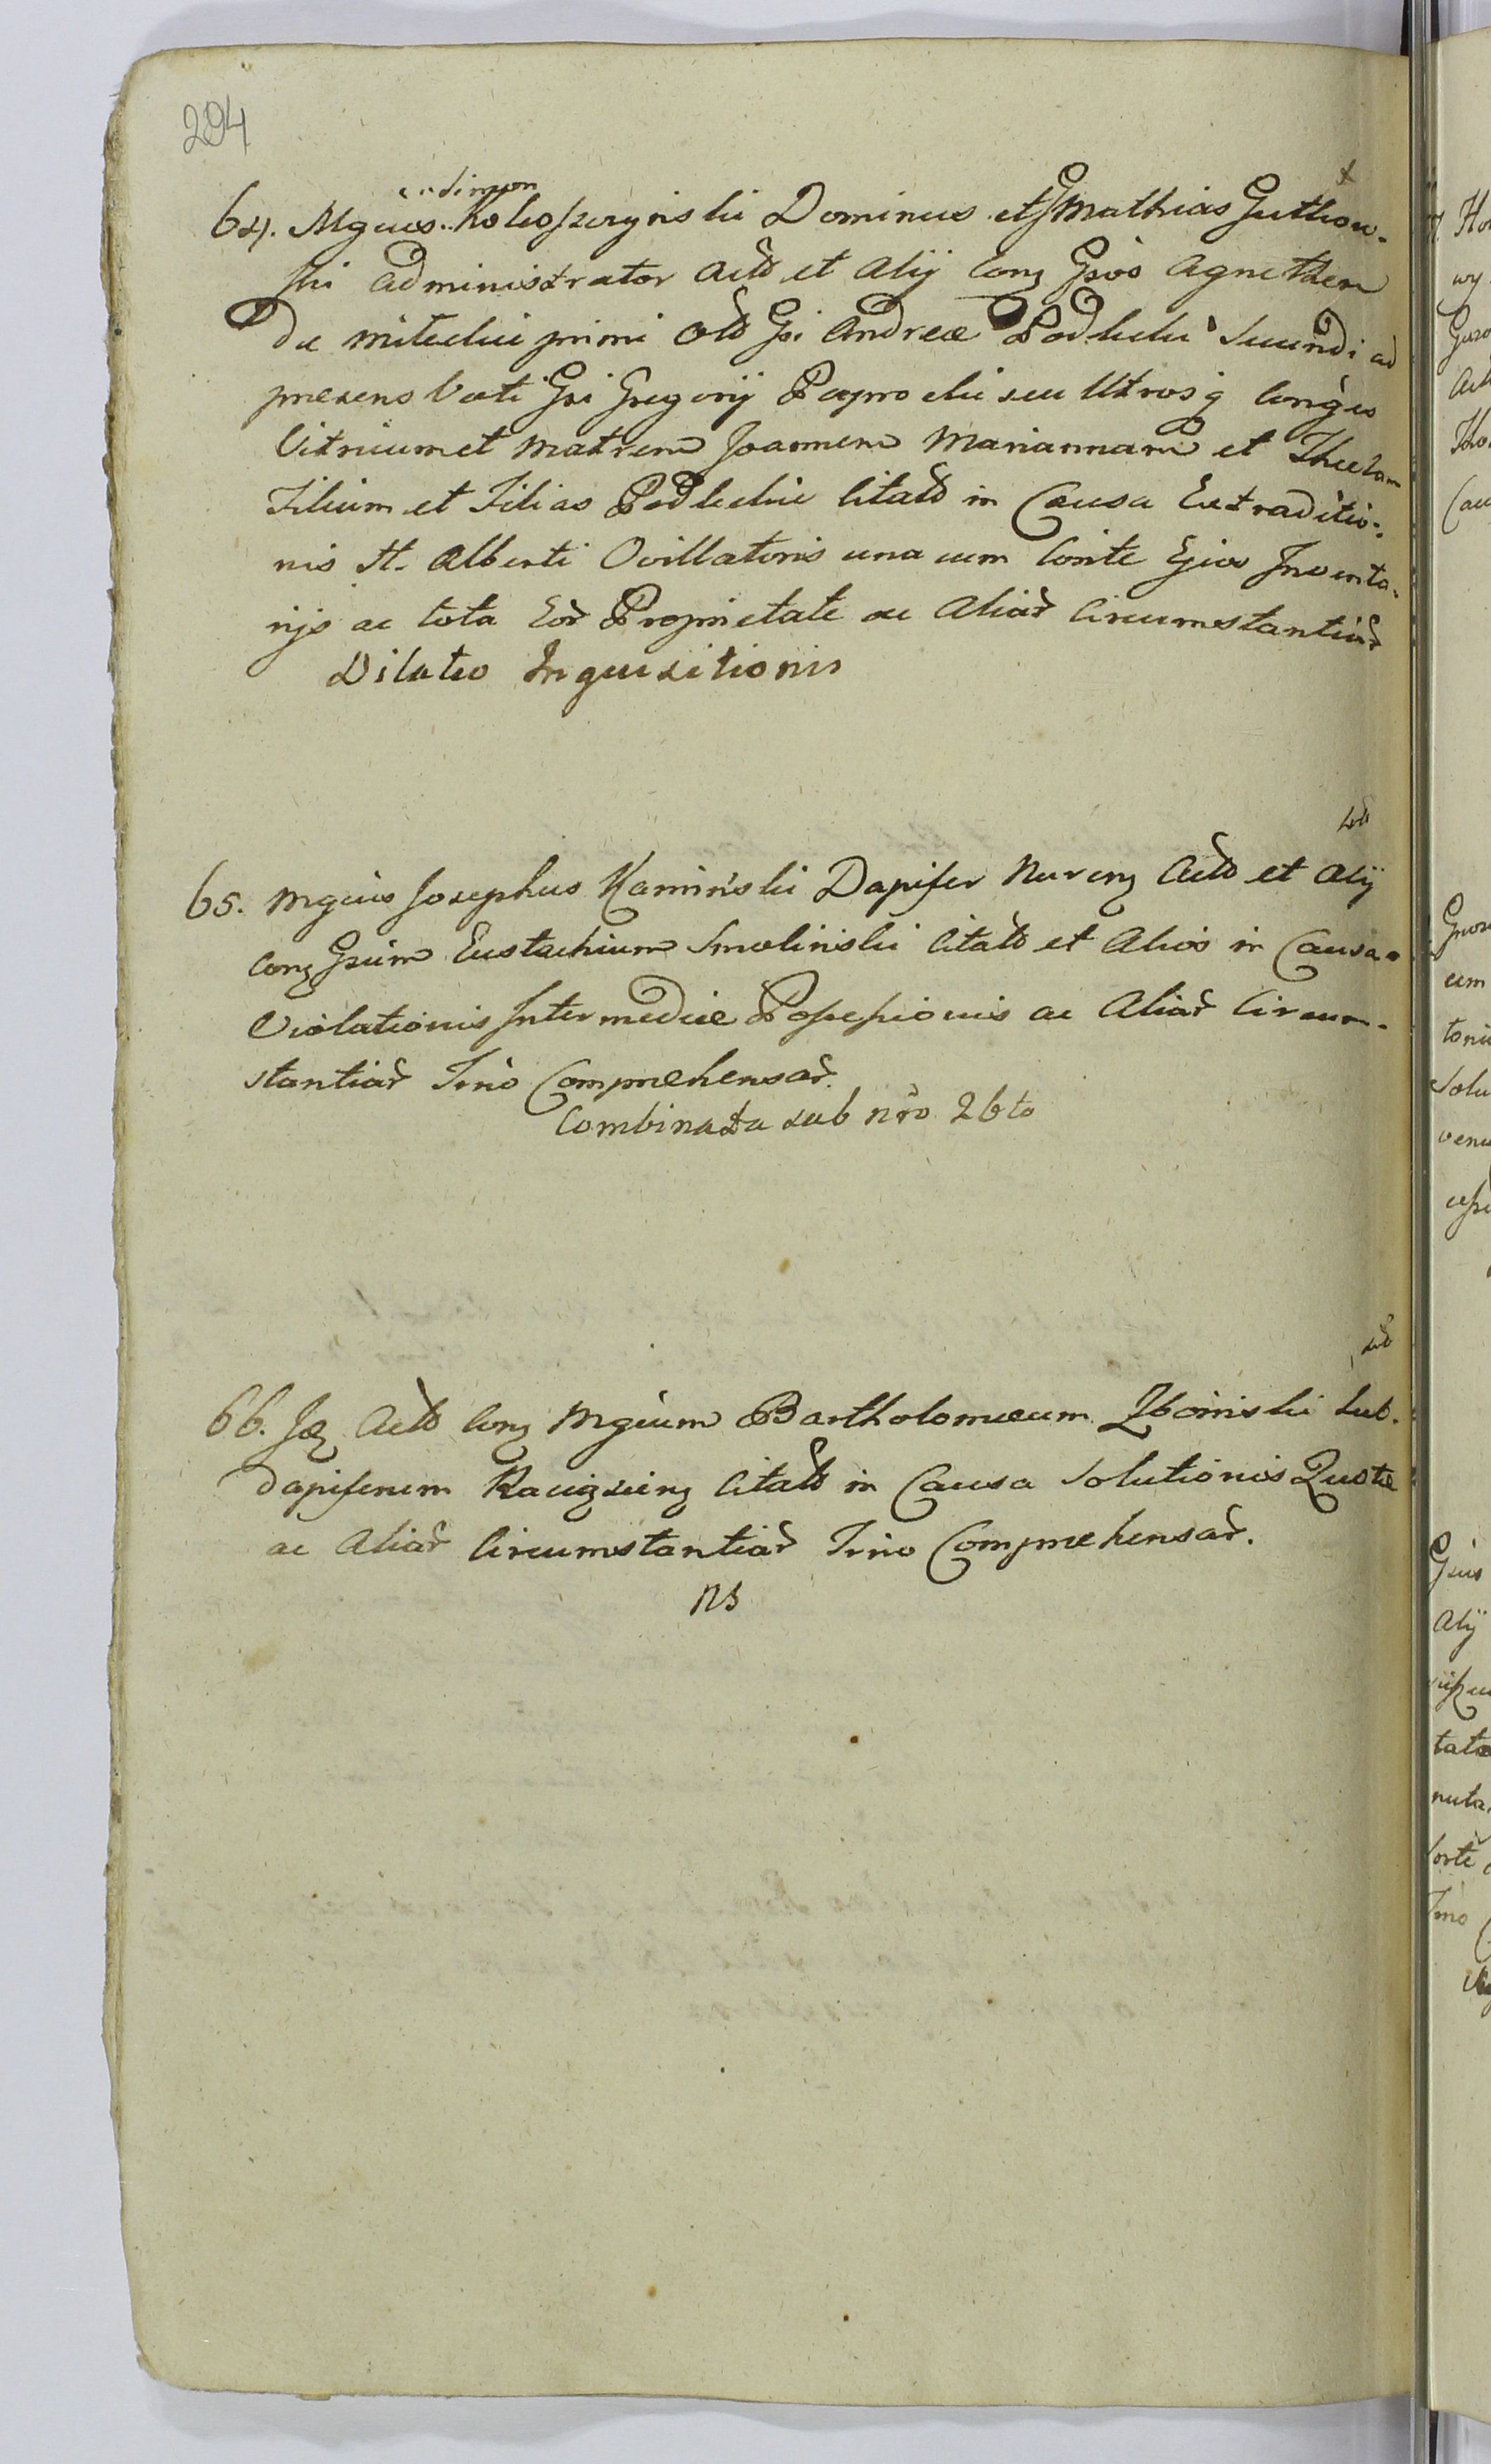 294
64. Mgcus Koleoszczynski Dominus et G Mathias Gutkow-
ski administrator Actô et Alÿ Conz Gsôs Agnethem
De Miteckie primi Olô Gsi Andreæ Podlecki Secundi ad
præsens Voti Gsi Gregorÿ Paprocki seu Utrosq Conges
Vitricum et Matrem Joannem Mariannam et Theclam
Filium et Filias Podleckie Citatô in Causa Extraditio-
nis H. Alberti Ovillatoris una cum Conte Ejus Inventa-
rÿs ac tota Eor Proprietate ac Aliar Circumstantiar
Dilatio Inquisitionis
65. Mgcus Josephus Kaminski Dapifer Nurenz Actô et Alÿ
Conz Gsum Eustachium Smolinski Citatô et Alios in Causa
Violationis Intermediæ Possessionis ac Aliar Circum-
stantiar Tmô Comprehensar.
Combinata sub nrô 26to
66. Jdz Actô Conz Mgcum Bartholomæum Zboinski Sub-
dapiferum Raciązienz Citatô in Causa Solutionis Quotæ
ac Aliar Circumstantiar Tmô Comprehensar.
NS